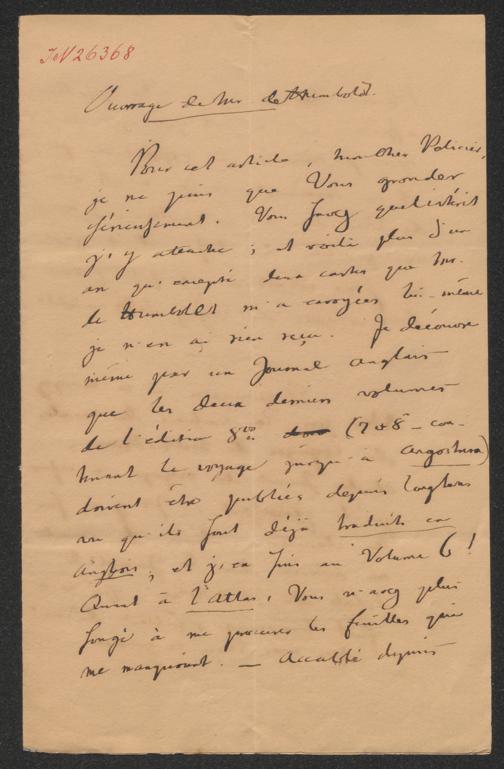 IN 26368
Ouvrage de Mr de Humboldt.
Pour cet article, mon cher Policier,
je ne puis que Vous gronder
sérieusement. Vous savez quel intérêt
j'y attache ; et voilà plus d'un
an qu'excepté deux cartes que Mr.
de Humboldt m'a envoyées lui-même
je n'en ai rien reçu. Je découvre
même par un Journal anglais
que les deux derniers volumes
de l'édition 8vo (7 & 8 - con-
tenant le voyage jusqu'à angostura)
doivent être publiés depuis longtems
vu qu'ils sont déjà traduits en
anglois, et j'en suis au Volume 6!
Quant à l'atlas, Vous n'avez plus
songé à me procurer les feuilles qui
me manquoient. — Accablé depuis